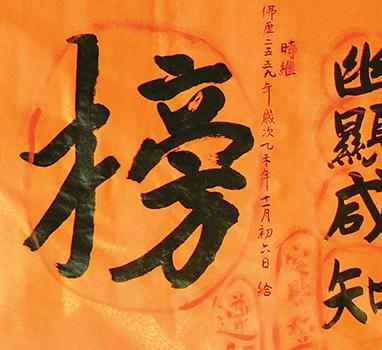 幽顯咸知
時維
佛歷二五五九年歲次乙未年十一月初六日給
榜